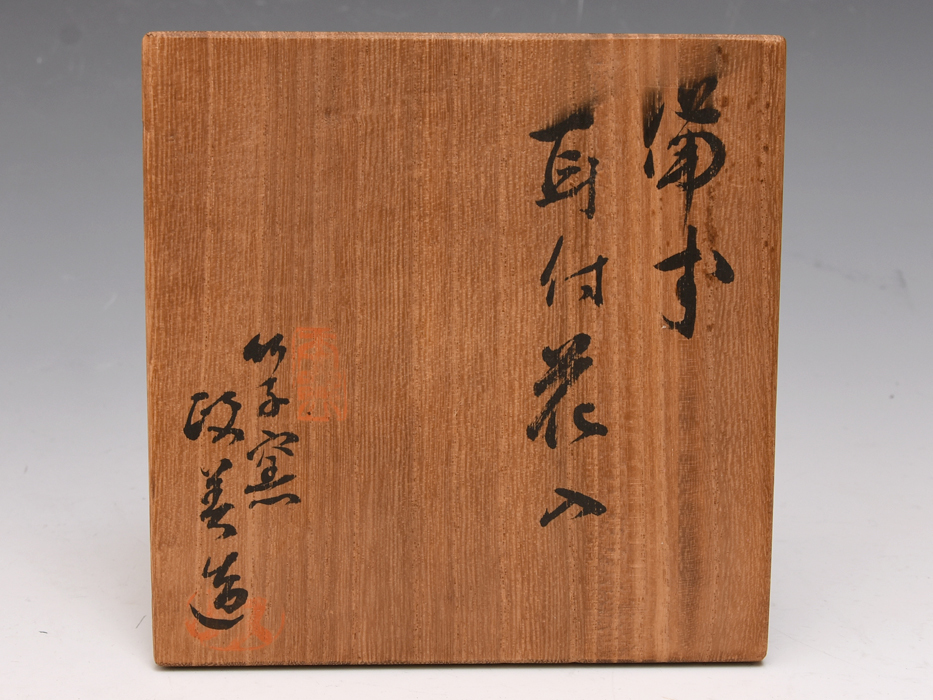 備前
耳付花入
竹子窯
政善造